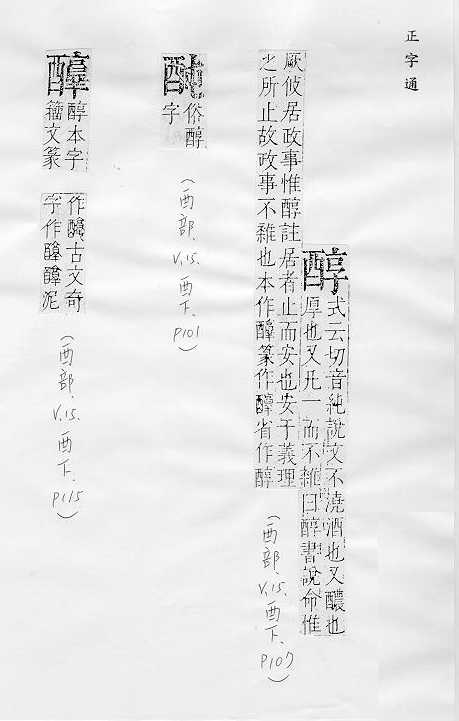 正字通
醇
式云切音純說文不澆酒也又醲也
厚也又凡一而不雜曰醇書說命惟
厥攸居政事惟醇註居者止而安也安于義理
之所止故政事不雜也本作𨣄篆作𨣄省作醇
(酉部、V.15.酉下.P107)
俗醇
字
(酉部、V.15.酉下.P101)
醇本字
籀文篆
作𨣄古文奇
字作
泥
(酉部、V.15.酉下.P115)